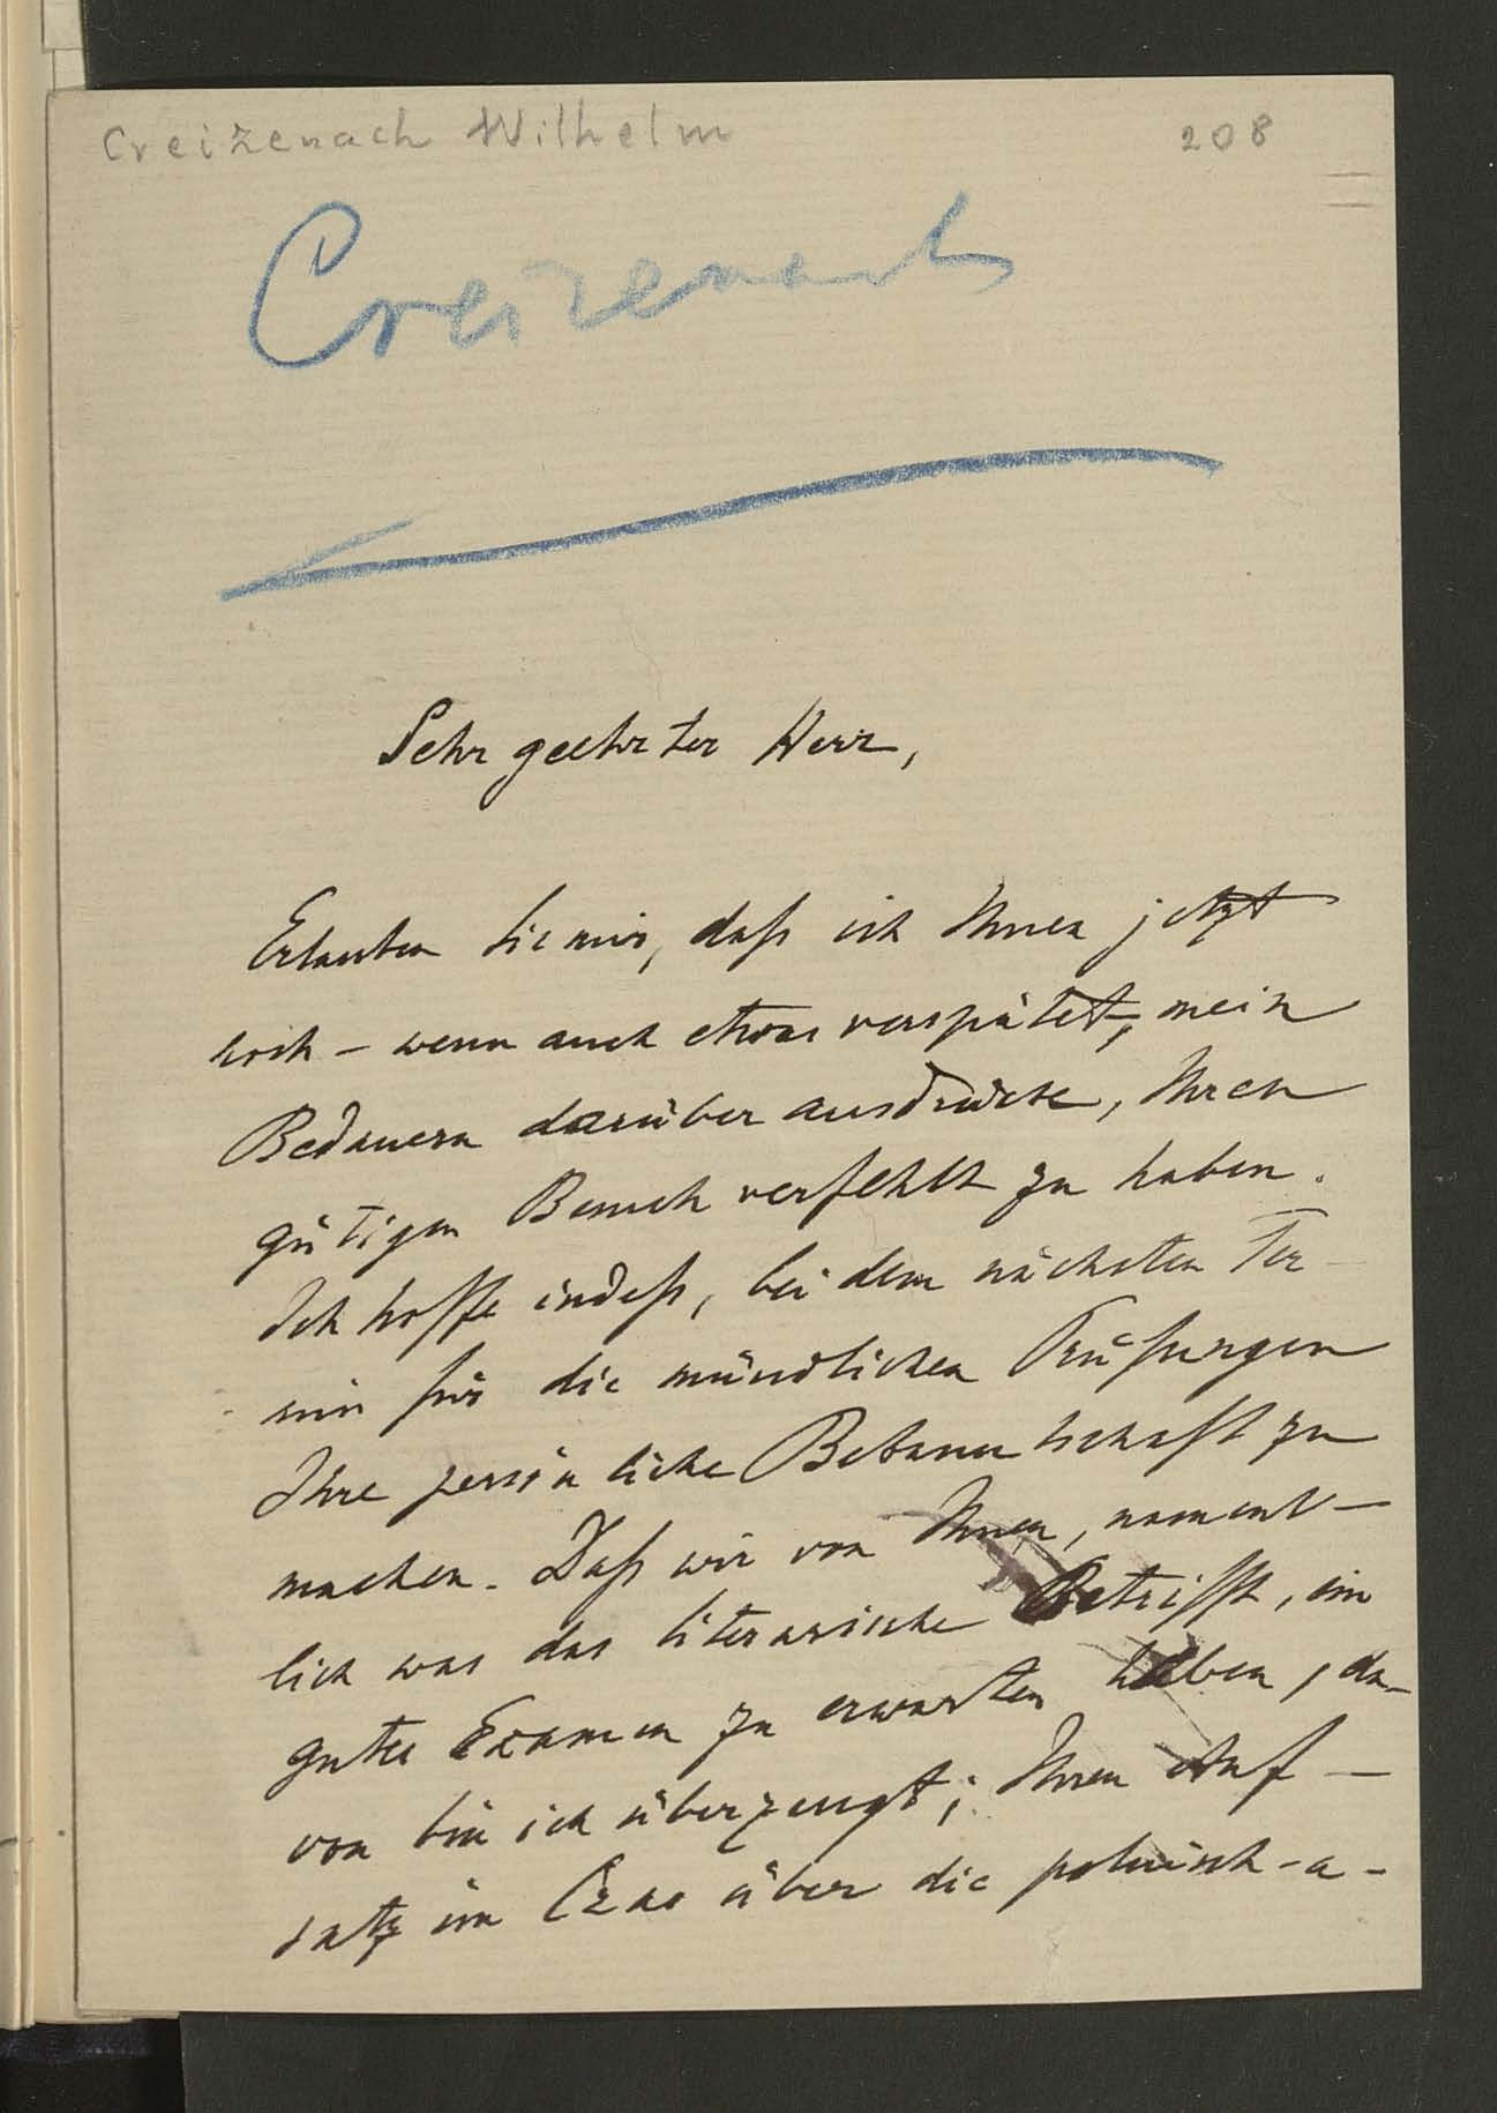 Creizenach Wilhelm
208
Creizenach
Sehr geehrter Herr,
Erlauben Sie mir, daß ich Ihnen jetzt
noch – wenn auch etwas verspätet, mein
Bedauern darüber ausdrücke, Ihren
gütigen Besuch verfehlt zu haben.
Ich hoffe indeß, bei dem nächsten Ter-
min für die mündlichen Prüfungen
Ihre persönliche Bekanntschaft zu
machen. Daß wir von Ihnen, nament-
lich was das literarische Betrifft, ein
gutes Examen zu erwarten haben, da-
von bin ich überzeugt; Ihren Auf-
satz im Czas über die polnisch-a-